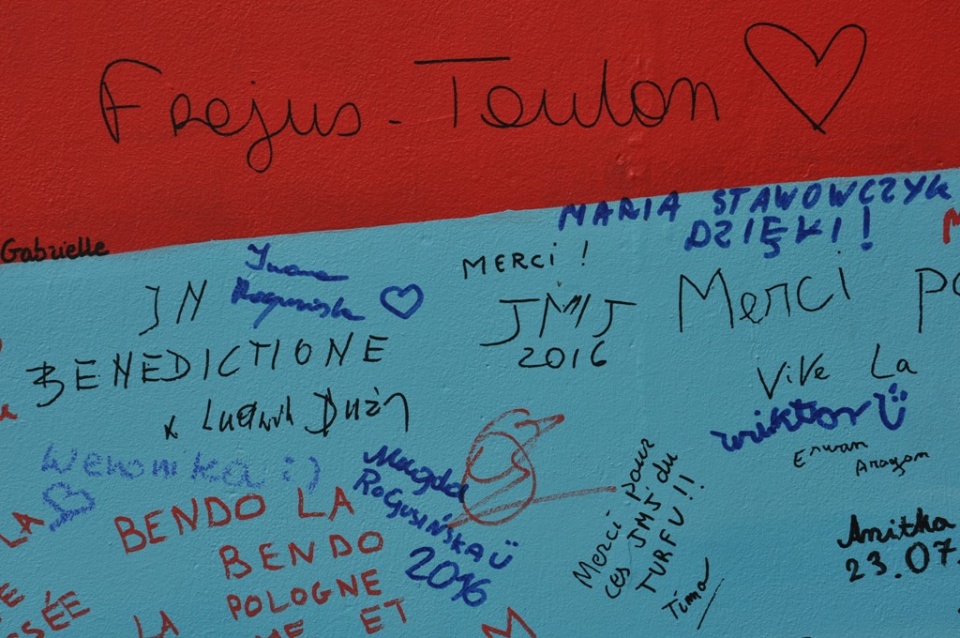 Frejus-Toulon
MARIA STAWOWCZYK
DZIĘKI!
Gabrielle
MERCI !
JMJ
2016
Merci
IN
BENEDICTIONE
x Ludwik
ViVe La
wiktor
Erwan
Aragon
Weronika :)
Magda
Rogusińska
2016
BENDO LA
BENDO
POLOGNE
ET
LA
Merci pour
ces JMJ du
TURFU !!
Tima
Anitka
23.07.